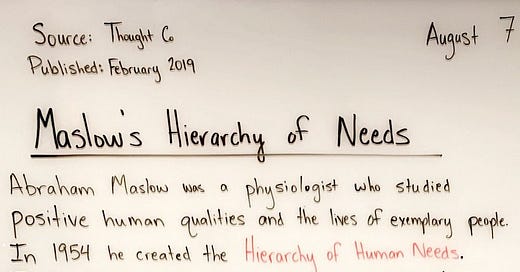 Source: Thought Co
August 7
Published: February 2019
Maslow's Hierarchy of Needs
Abraham Maslow was a physiologist who studied
positive human qualities and the lives of exemplary people.
In 1954 he created the Hierarchy of Human Needs.